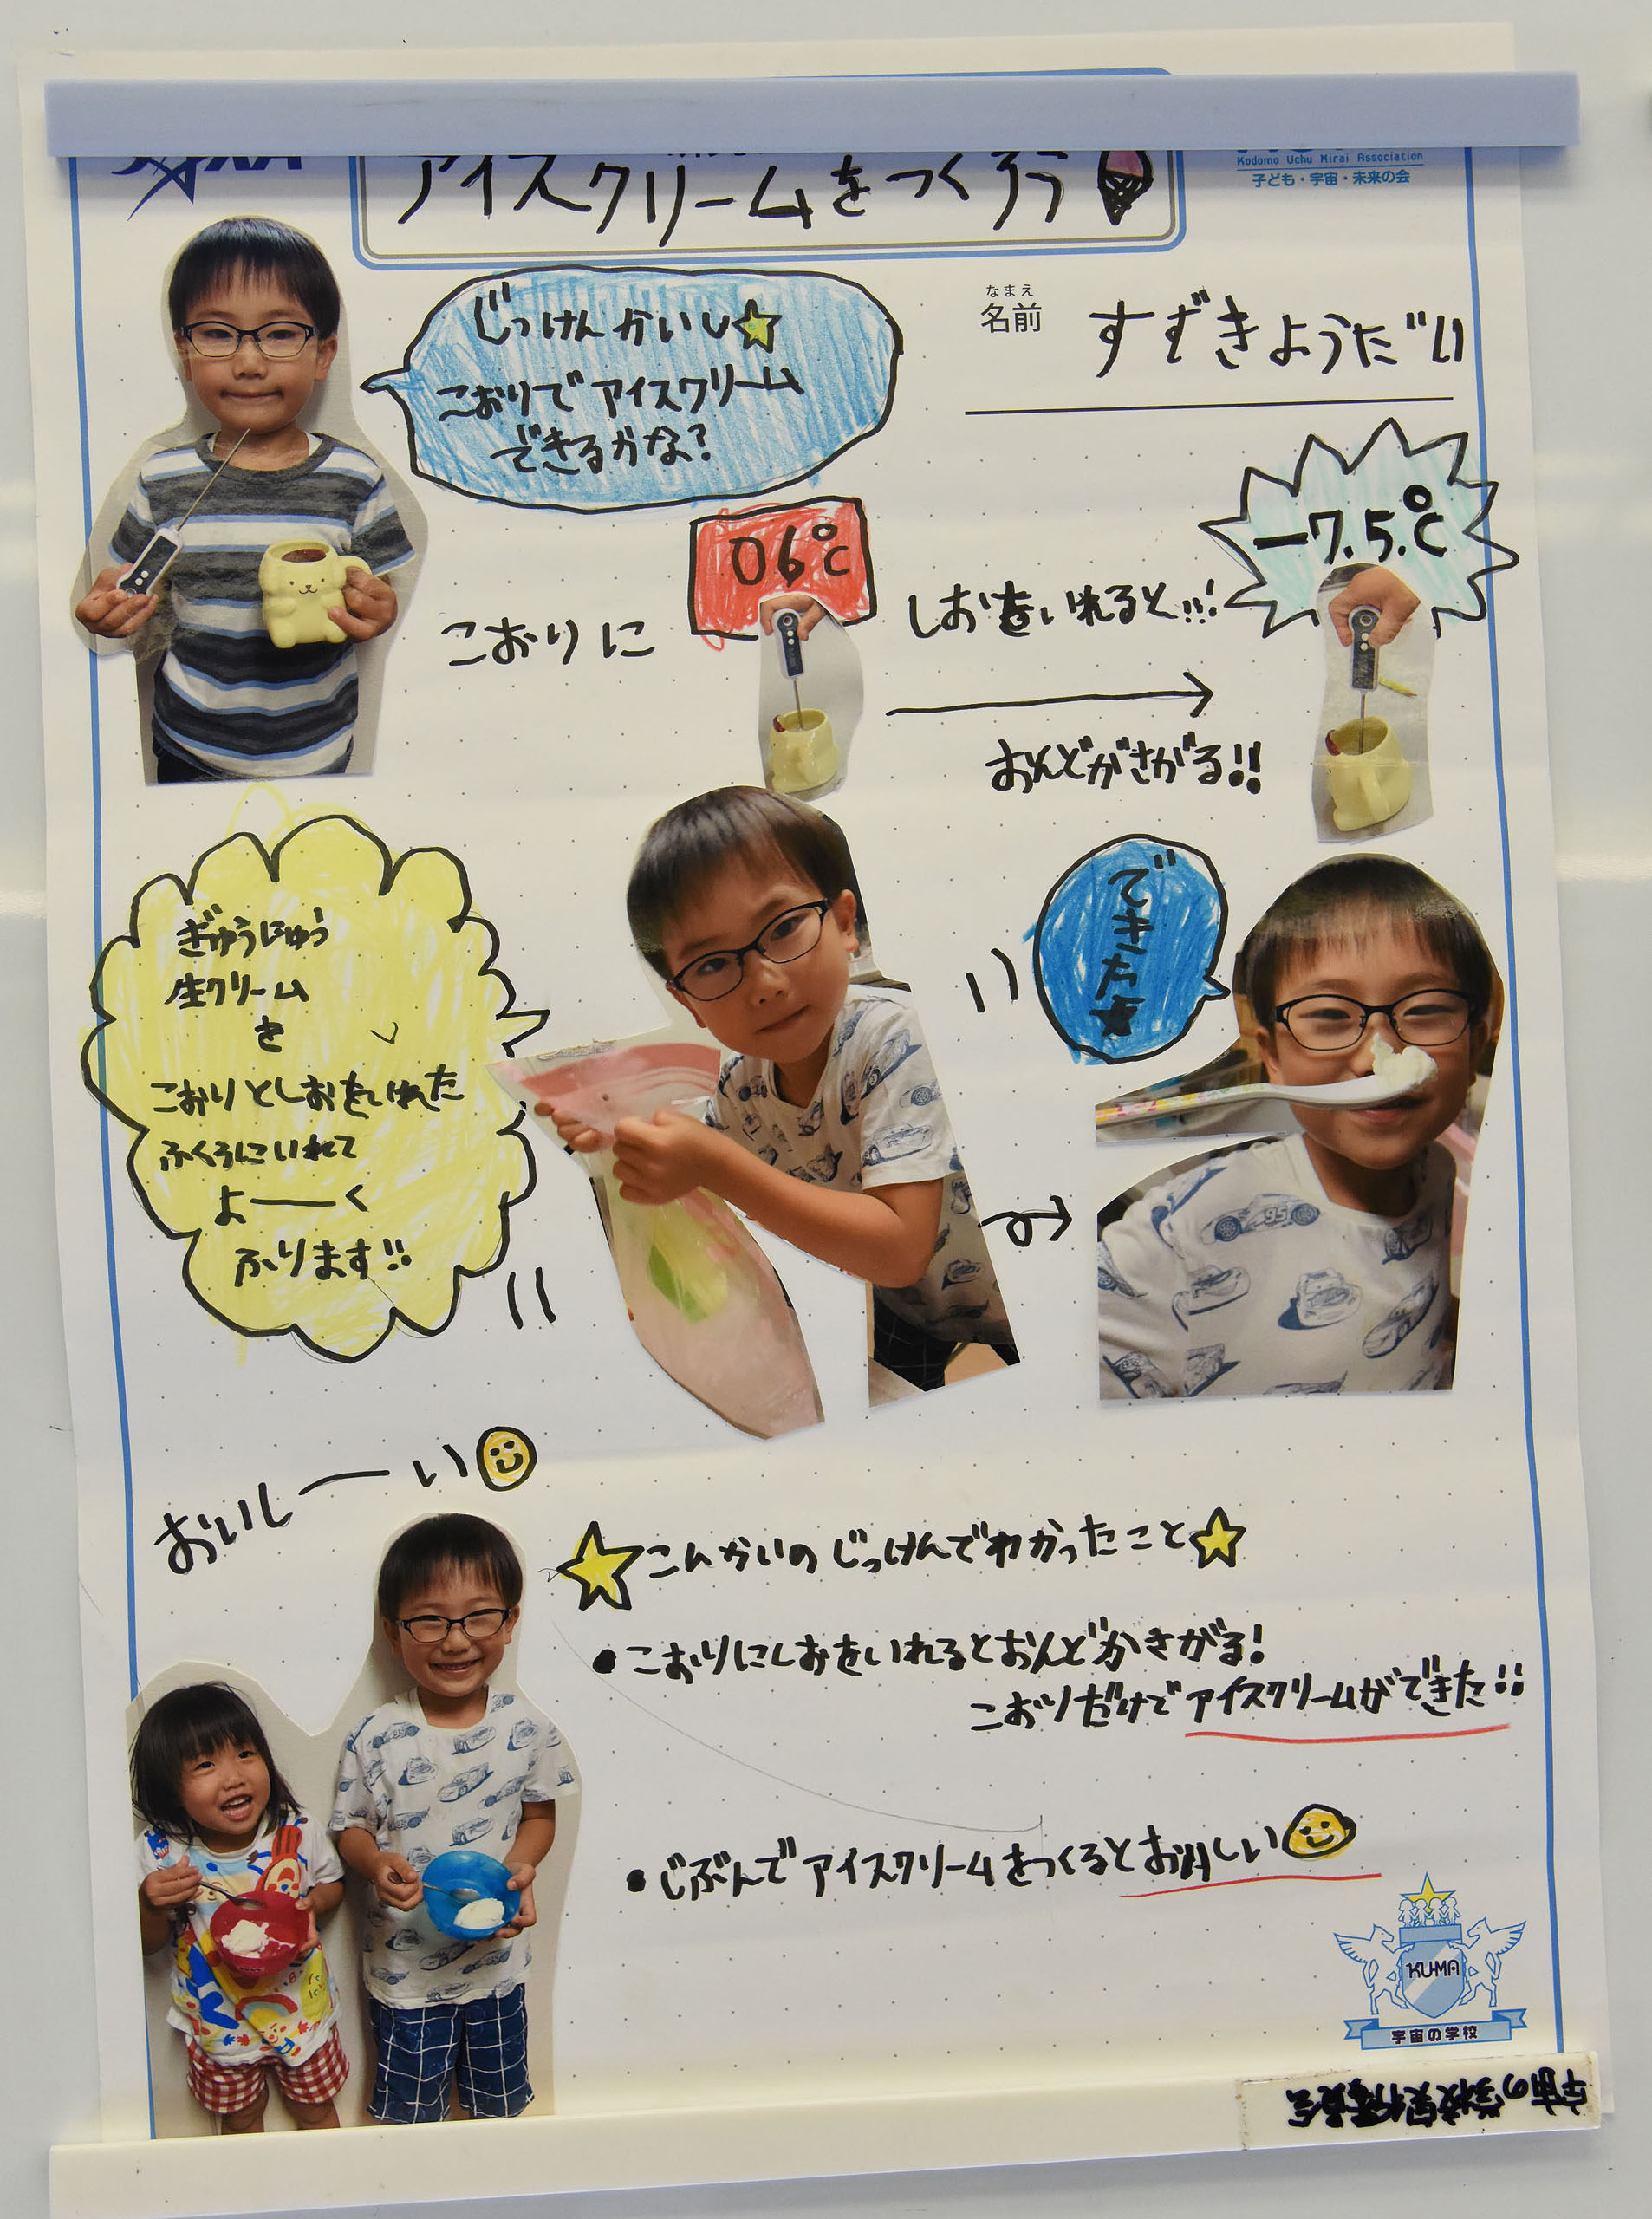 アイスクリームをつくろう
Kodomo Uchu Mirai Association
子ども・宇宙・未来の会
なまえ
名前
すずきようだい
じっけんかいし
こおりでアイスクリーム
できるかな?
06℃
こおりに
しおをいれると...!
-7.5.℃
おんどがさがる!!
ぎゅうにゅう
生クリーム
を
こおりとしおをいれた
ふくろにいれて
よーーく
ふります!!
できた
おいしーーい
こんかいのじっけんでわかったこと
•こおりにしおをいれるとおんどがさがる!
こおりだけでアイスクリームができた!!
•じぶんでアイスクリームをつくるとおいしい
KU-MA
宇宙の学校
宇宙の学校実行委員会